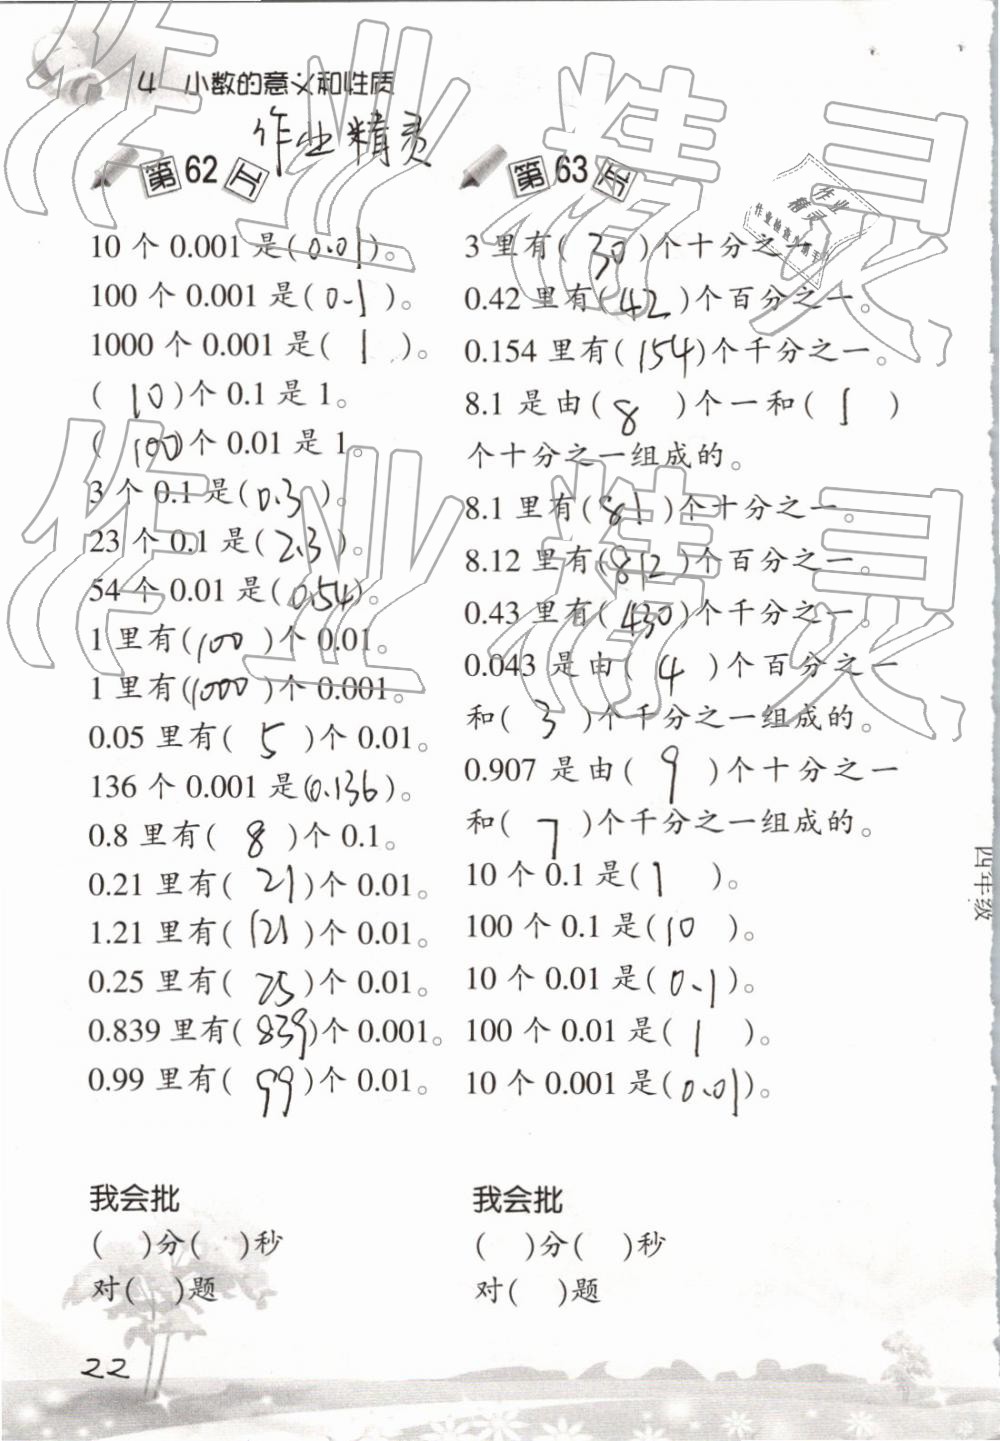 4 小数的意义和性质
作业精灵
第62页
10个0.001是(0.01)。
100个0.001是(0.1)。
1000个0.001是(1)。
(10)个0.1是1。
(100)个0.01是1。
3个0.1是(0.3)。
23个0.1是(2.3)。
54个0.01是(0.54)。
1里有(100)个0.01。
1里有(1000)个0.001。
0.05里有(5)个0.01。
136个0.001是(0.136)。
0.8里有(8)个0.1。
0.21里有(21)个0.01。
1.21里有(121)个0.01。
0.25里有(25)个0.01。
0.839里有(839)个0.001。
0.99里有(99)个0.01。
我会批
( )分( )秒
对( )题
第63页
3里有(30)个十分之一。
0.42里有(42)个百分之一。
0.154里有(154)个千分之一。
8.1是由(8)个一和(1)
个十分之一组成的。
8.1里有(81)个十分之一。
8.12里有(812)个百分之一。
0.43里有(430)个千分之一。
0.043是由(4)个百分之一
和(3)个千分之一组成的。
0.907是由(9)个十分之一
和(7)个千分之一组成的。
10个0.1是(1)。
100个0.1是(10)。
10个0.01是(0.1)。
100个0.01是(1)。
10个0.001是(0.01)。
我会批
( )分( )秒
对( )题
四年级
22
作业精灵
作业精灵
作业
精灵